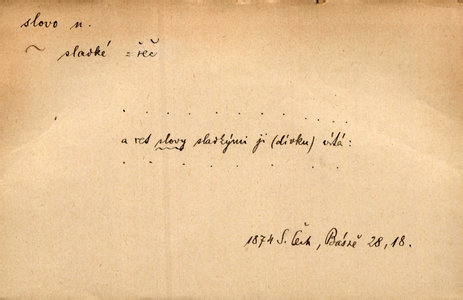 slovo n.
~ sladké = řeč
. . . . . . . . . . . .
a ret slovy sladkými ji (dívku) vítá:
. . . . . . . . . . .
1874 S. Čech, Básně 28, 18.